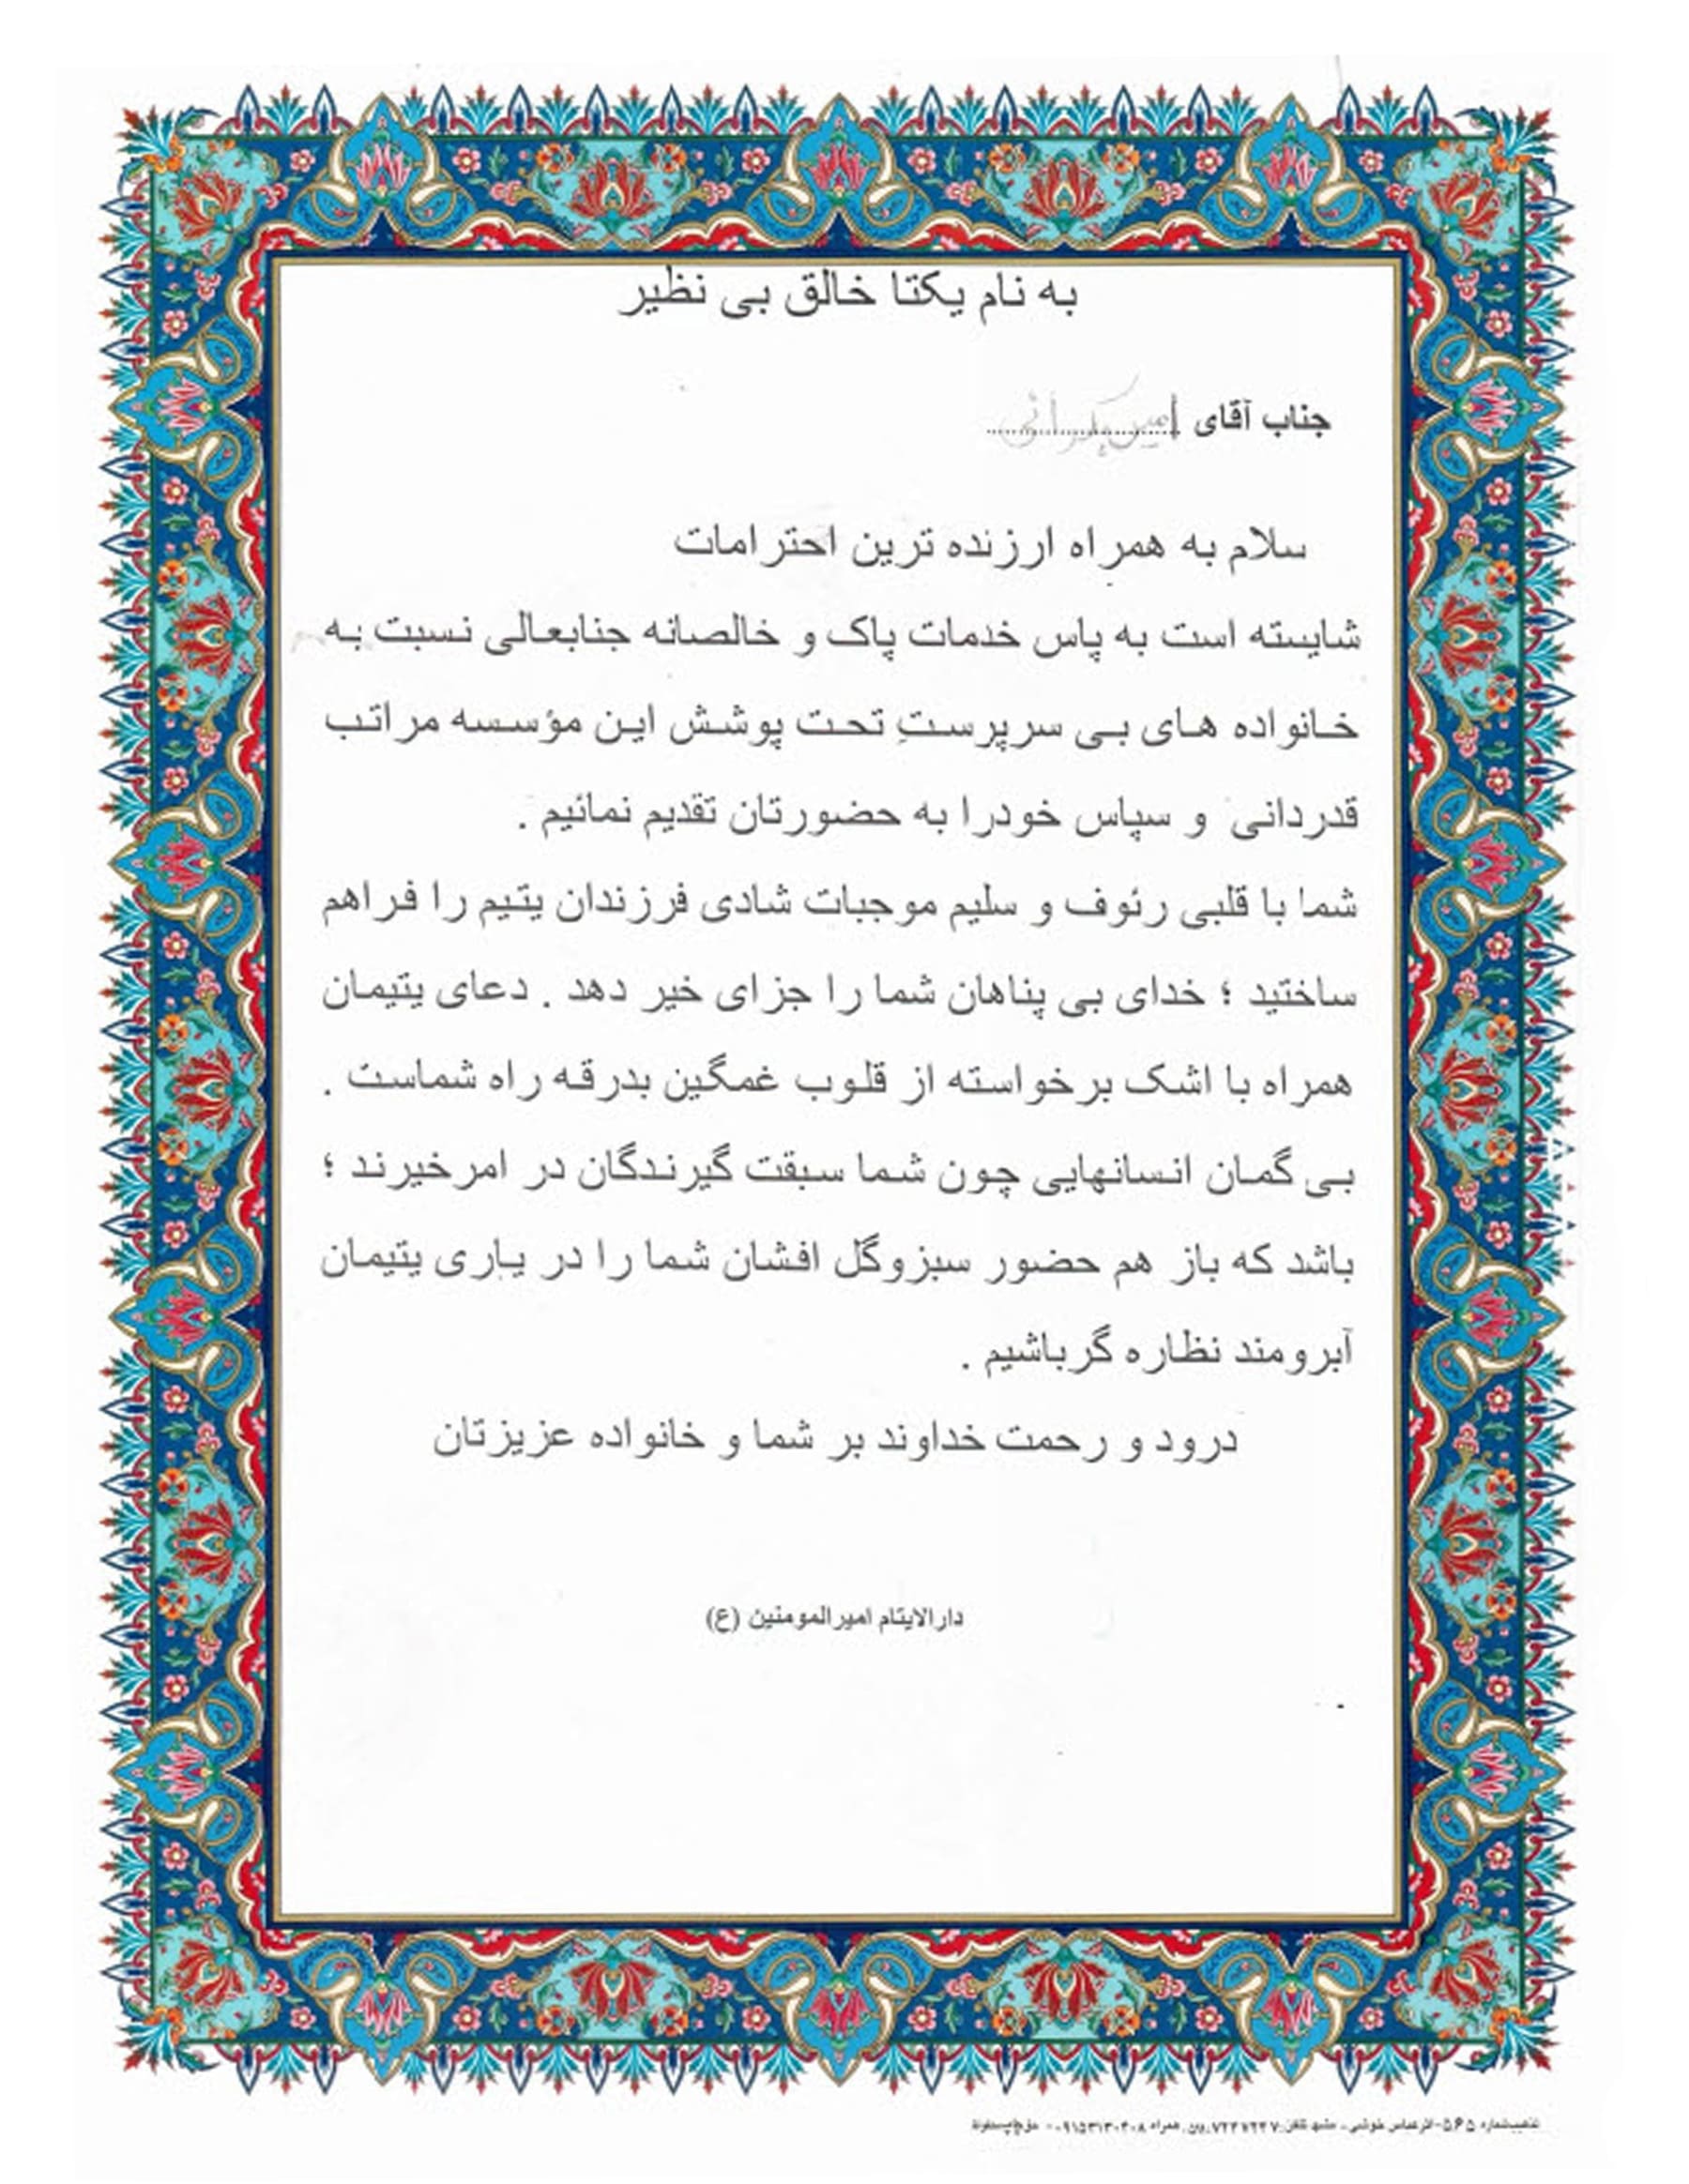 به نام یکتا خالق بی نظیر
جناب آقای امین
سلام به همراه ارزنده ترین احترامات
شایسته است به پاس خدمات پاک و خالصانه جنابعالی نسبت به
خانواده های بی سرپرستِ تحت پوشش این مؤسسه مراتب
قدردانی و سپاس خودرا به حضورتان تقدیم نمائیم .
شما با قلبی رئوف و سلیم موجبات شادی فرزندان یتیم را فراهم
ساختید ؛ خدای بی پناهان شما را جزای خیر دهد . دعای یتیمان
همراه با اشک برخواسته از قلوب غمگین بدرقه راه شماست .
بی گمان انسانهایی چون شما سبقت گیرندگان در امرخیرند ؛
باشد که باز هم حضور سبزوگل افشان شما را در یاری یتیمان
آبرومند نظاره گرباشیم .
درود و رحمت خداوند بر شما و خانواده عزیزتان
دارالایتام امیرالمومنین (ع)
۵۶۵- همراه